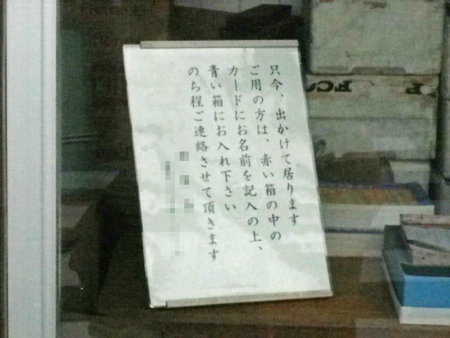 只今、出かけて居ります
ご用の方は、赤い箱の中の
カードにお名前を記入の上、
青い箱にお入れ下さい
のち程ご連絡させて頂きます